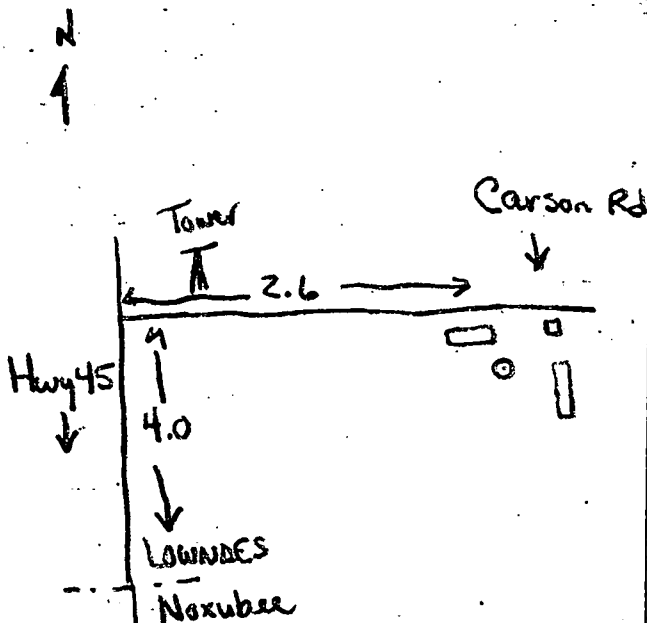 N
Tower
Carson Rd
2.6
Hwy 45
4.0
LOWNDES
Noxubee